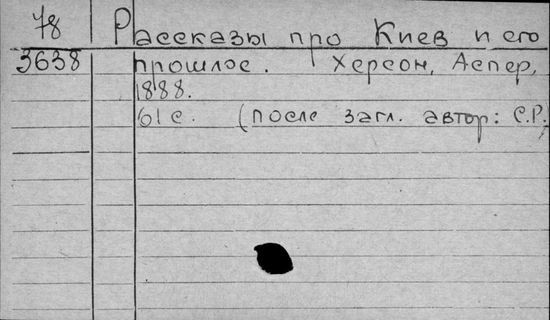 78 Рассказы про Киев и его
3638 прошлое. Херсон, Аспер,
1888.
61 с. (после загл. автор: С.Р.)